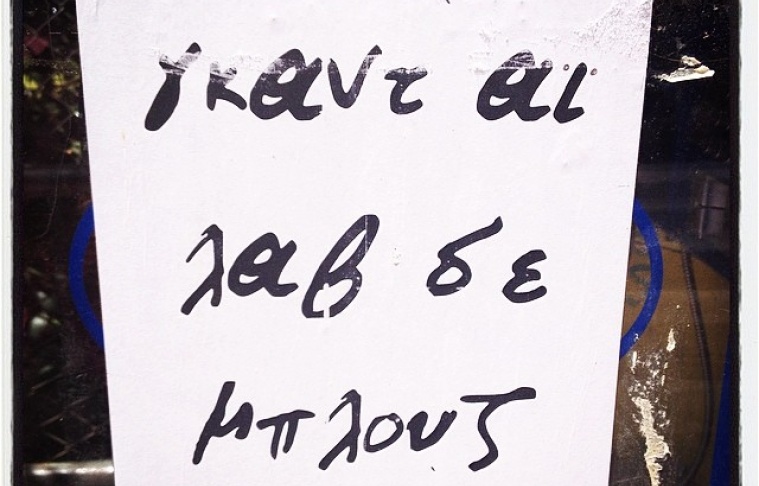 γκαντ αϊ
λαβ δε
μπλουζ